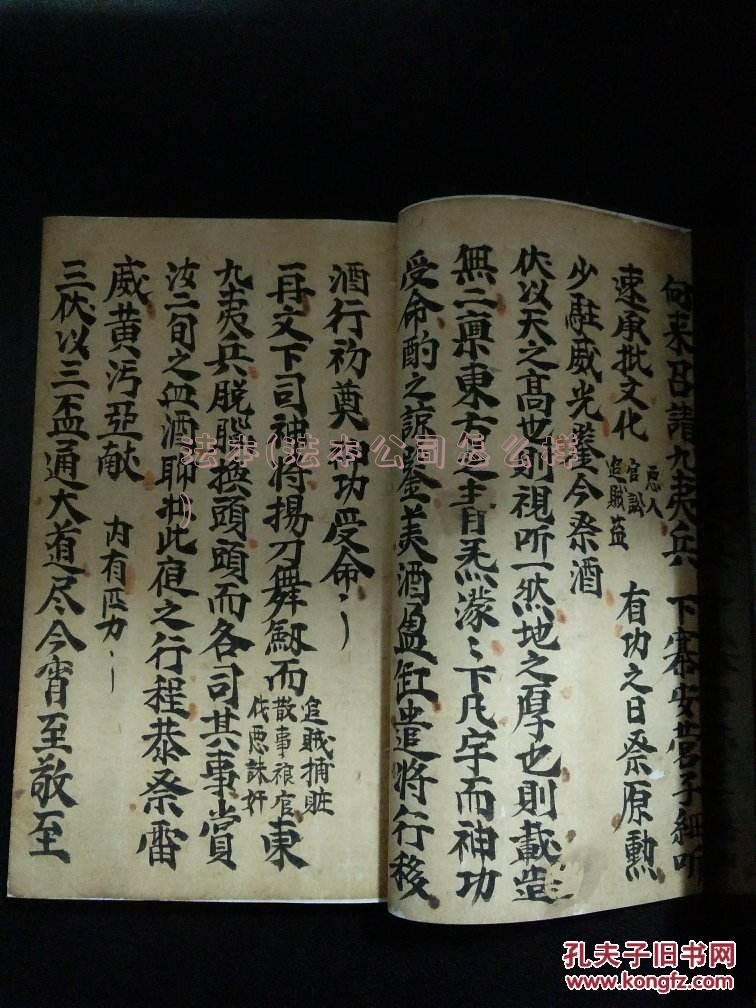 向来召請九夷兵 下寨安营子細听
速承批文化 惡人 官訟 追賊盗 有功之日祭原勲
少駐威光鑒今祭酒
伏以天之高也則視听一然地之厚也則載造
無二禀東方之青炁濛〻下凡宇而神功
受命酌之諒鉴美酒盈缸遣将行移
酒行初奠 神功受命〻
再文下司神将揚刀舞劔而 追賊捕賍 散事禳官 伐惡誅奸 東
九夷兵脱 換頭頭而各司其事賞
汝二旬之血酒聊 此夜之行程恭祭雷
威黄沔亞献 内有匹力〻
三伏以三盃通大道尽今宵至敬至
法本(法本公司怎么样
)
孔夫子旧书网
www.kongfz.com